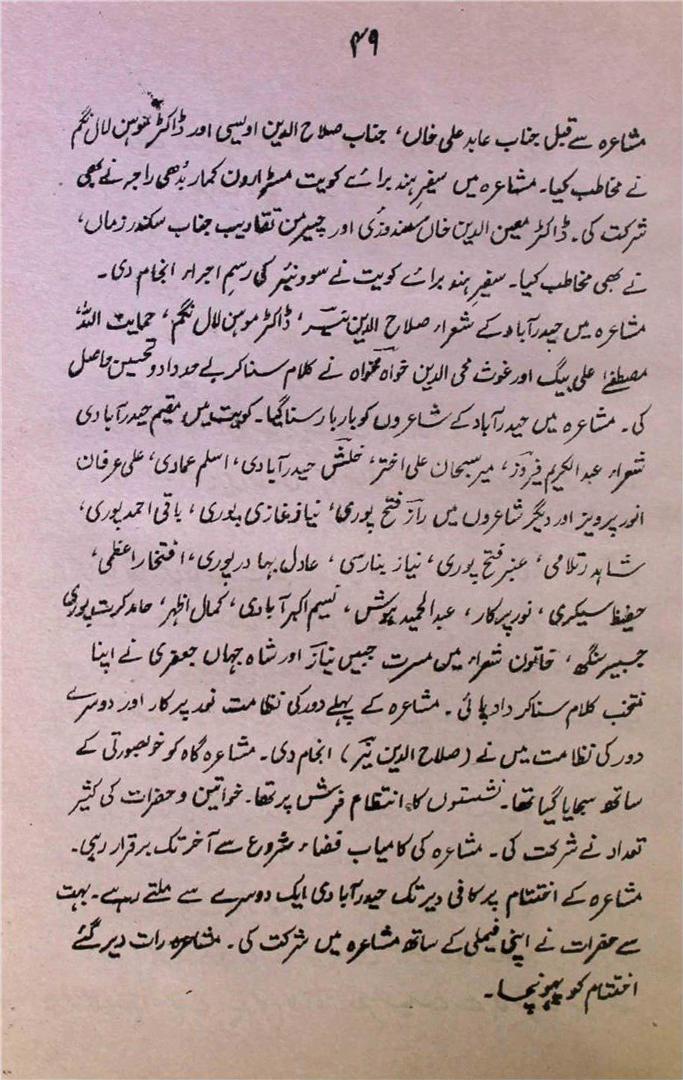 ۴۹
مشاعرہ سے قبل جناب عابد علی خاں، جناب صلاح الدین اویسی اور ڈاکٹر موہن لال نگم
نے مخاطب کیا۔ مشاعرہ میں سفیر ہند برائے کویت مسٹر ارون کمار بدھی راجہ نے بھی
شرکت کی۔ ڈاکٹر معین الدین خاں سعندوزئی اور چیرمن تقاریب جناب سکندر زماں،
نے بھی مخاطب کیا۔ سفیر ہند برائے کویت نے سونیئر کی رسم اجراء انجام دی۔
مشاعرہ میں حیدرآباد کے شعراء صلاح الدین نیّر، ڈاکٹر موہن لال نگم، حمایت اللہ
مصطفےٰ علی بیگ اور غوث محی الدین خواہ مخواہ نے کلام سنا کر بے حد داد و تحسین حاصل
کی۔ مشاعرہ میں حیدرآباد کے شاعروں کو بار بار سنا گیا۔ کویت میں مقیم حیدرآبادی
شعراء عبدالکریم فیروز، میر سبحان علی اختر، خلش حیدرآبادی، اسلم عمادی، علی عرفان
انور پرویز اور دیگر شاعروں میں راز فتح پوری، نیاز غازی پوری، باقی احمد پوری،
شاہد رتلامی، عنبر فتح پوری، نیاز بنارسی، عادل بہادر پوری، افتخار اعظمی،
حفیظ سیکری، نور پرکار، عبدالحمید ہوش، نسیم اکبرآبادی، کمال اظہر، حامد کرت پوری
جسبیر سنگھ، خاتون شعراء میں مسرت جبیں نیاز اور شاہ جہاں جعفری نے اپنا
منتخب کلام سنا کر داد پائی۔ مشاعرہ کے پہلے دور کی نظامت نور پرکار اور دوسرے
دور کی نظامت میں نے (صلاح الدین نیّر) انجام دی۔ مشاعرہ گاہ کو خوبصورتی کے
ساتھ سجایا گیا تھا۔ نشستوں کا انتظام فرش پر تھا۔ خواتین و حضرات کی کثیر
تعداد نے شرکت کی۔ مشاعرہ کی کامیاب فضاء شروع سے آخر تک برقرار رہی۔
مشاعرہ کے اختتام پر کافی دیر تک حیدرآبادی ایک دوسرے سے ملتے رہے۔ بہت
سے حضرات نے اپنی فیملی کے ساتھ مشاعرہ میں شرکت کی۔ مشاعرہ رات دیر گئے
اختتام کو پہونچا۔